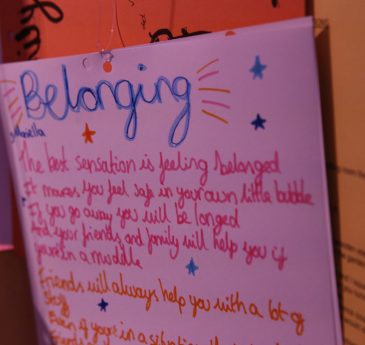 Belonging
The best sensation is feeling belonged
It makes you feel safe in your own little bubble
If you go away you will be longed
And your friends and family will help you if
you're in a muddle
Friends will always help you with a lot of
stuff
Even if you're in a situation that